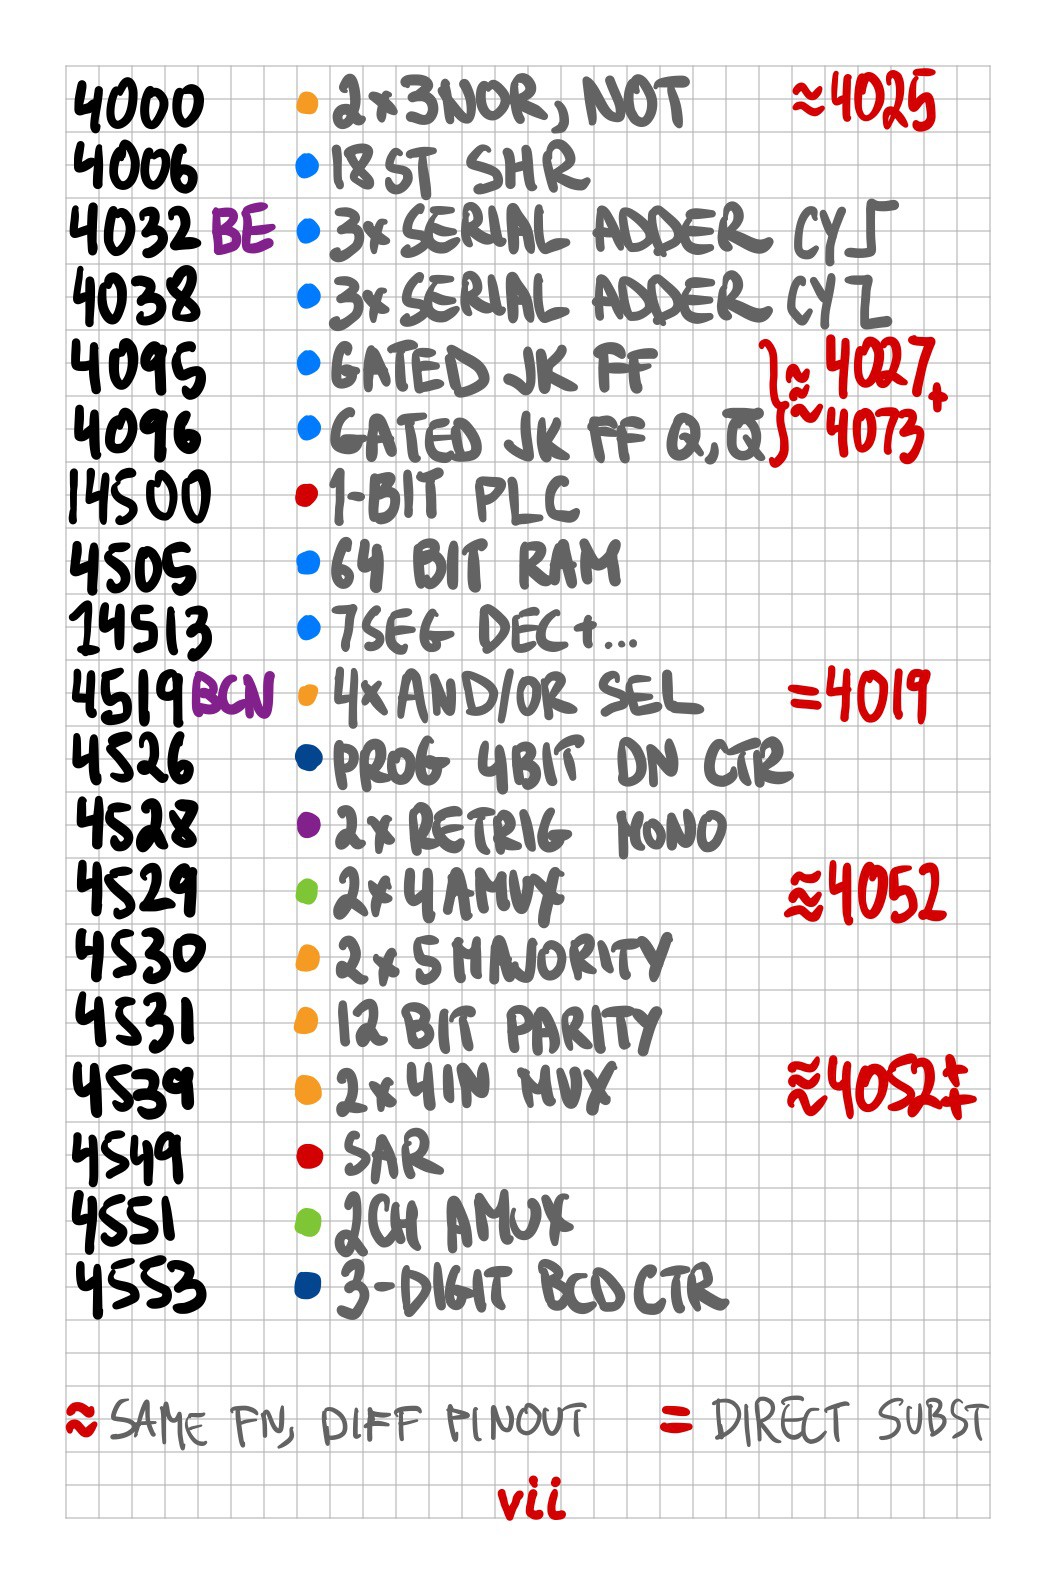 4000 2x3NOR, NOT ≈4025
4006 18ST SHR
4032 BE 3x SERIAL ADDER CY
4038 3x SERIAL ADDER CY
4095 GATED JK FF ≈ 4027+
4096 GATED JK FF Q, Q̅ ≈ 4073
14500 1-BIT PLC
4505 64 BIT RAM
14513 7SEG DEC+...
4519 BCN 4x AND/OR SEL =4019
4526 PROG 4BIT DN CTR
4528 2x RETRIG MONO
4529 2x 4 AMUX ≋4052
4530 2x 5 MAJORITY
4531 12 BIT PARITY
4539 2x 4IN MUX ≋4052
4549 SAR
4551 2CH AMUX
4553 3-DIGIT BCD CTR
≈ SAME FN, DIFF PINOUT = DIRECT SUBST
vii